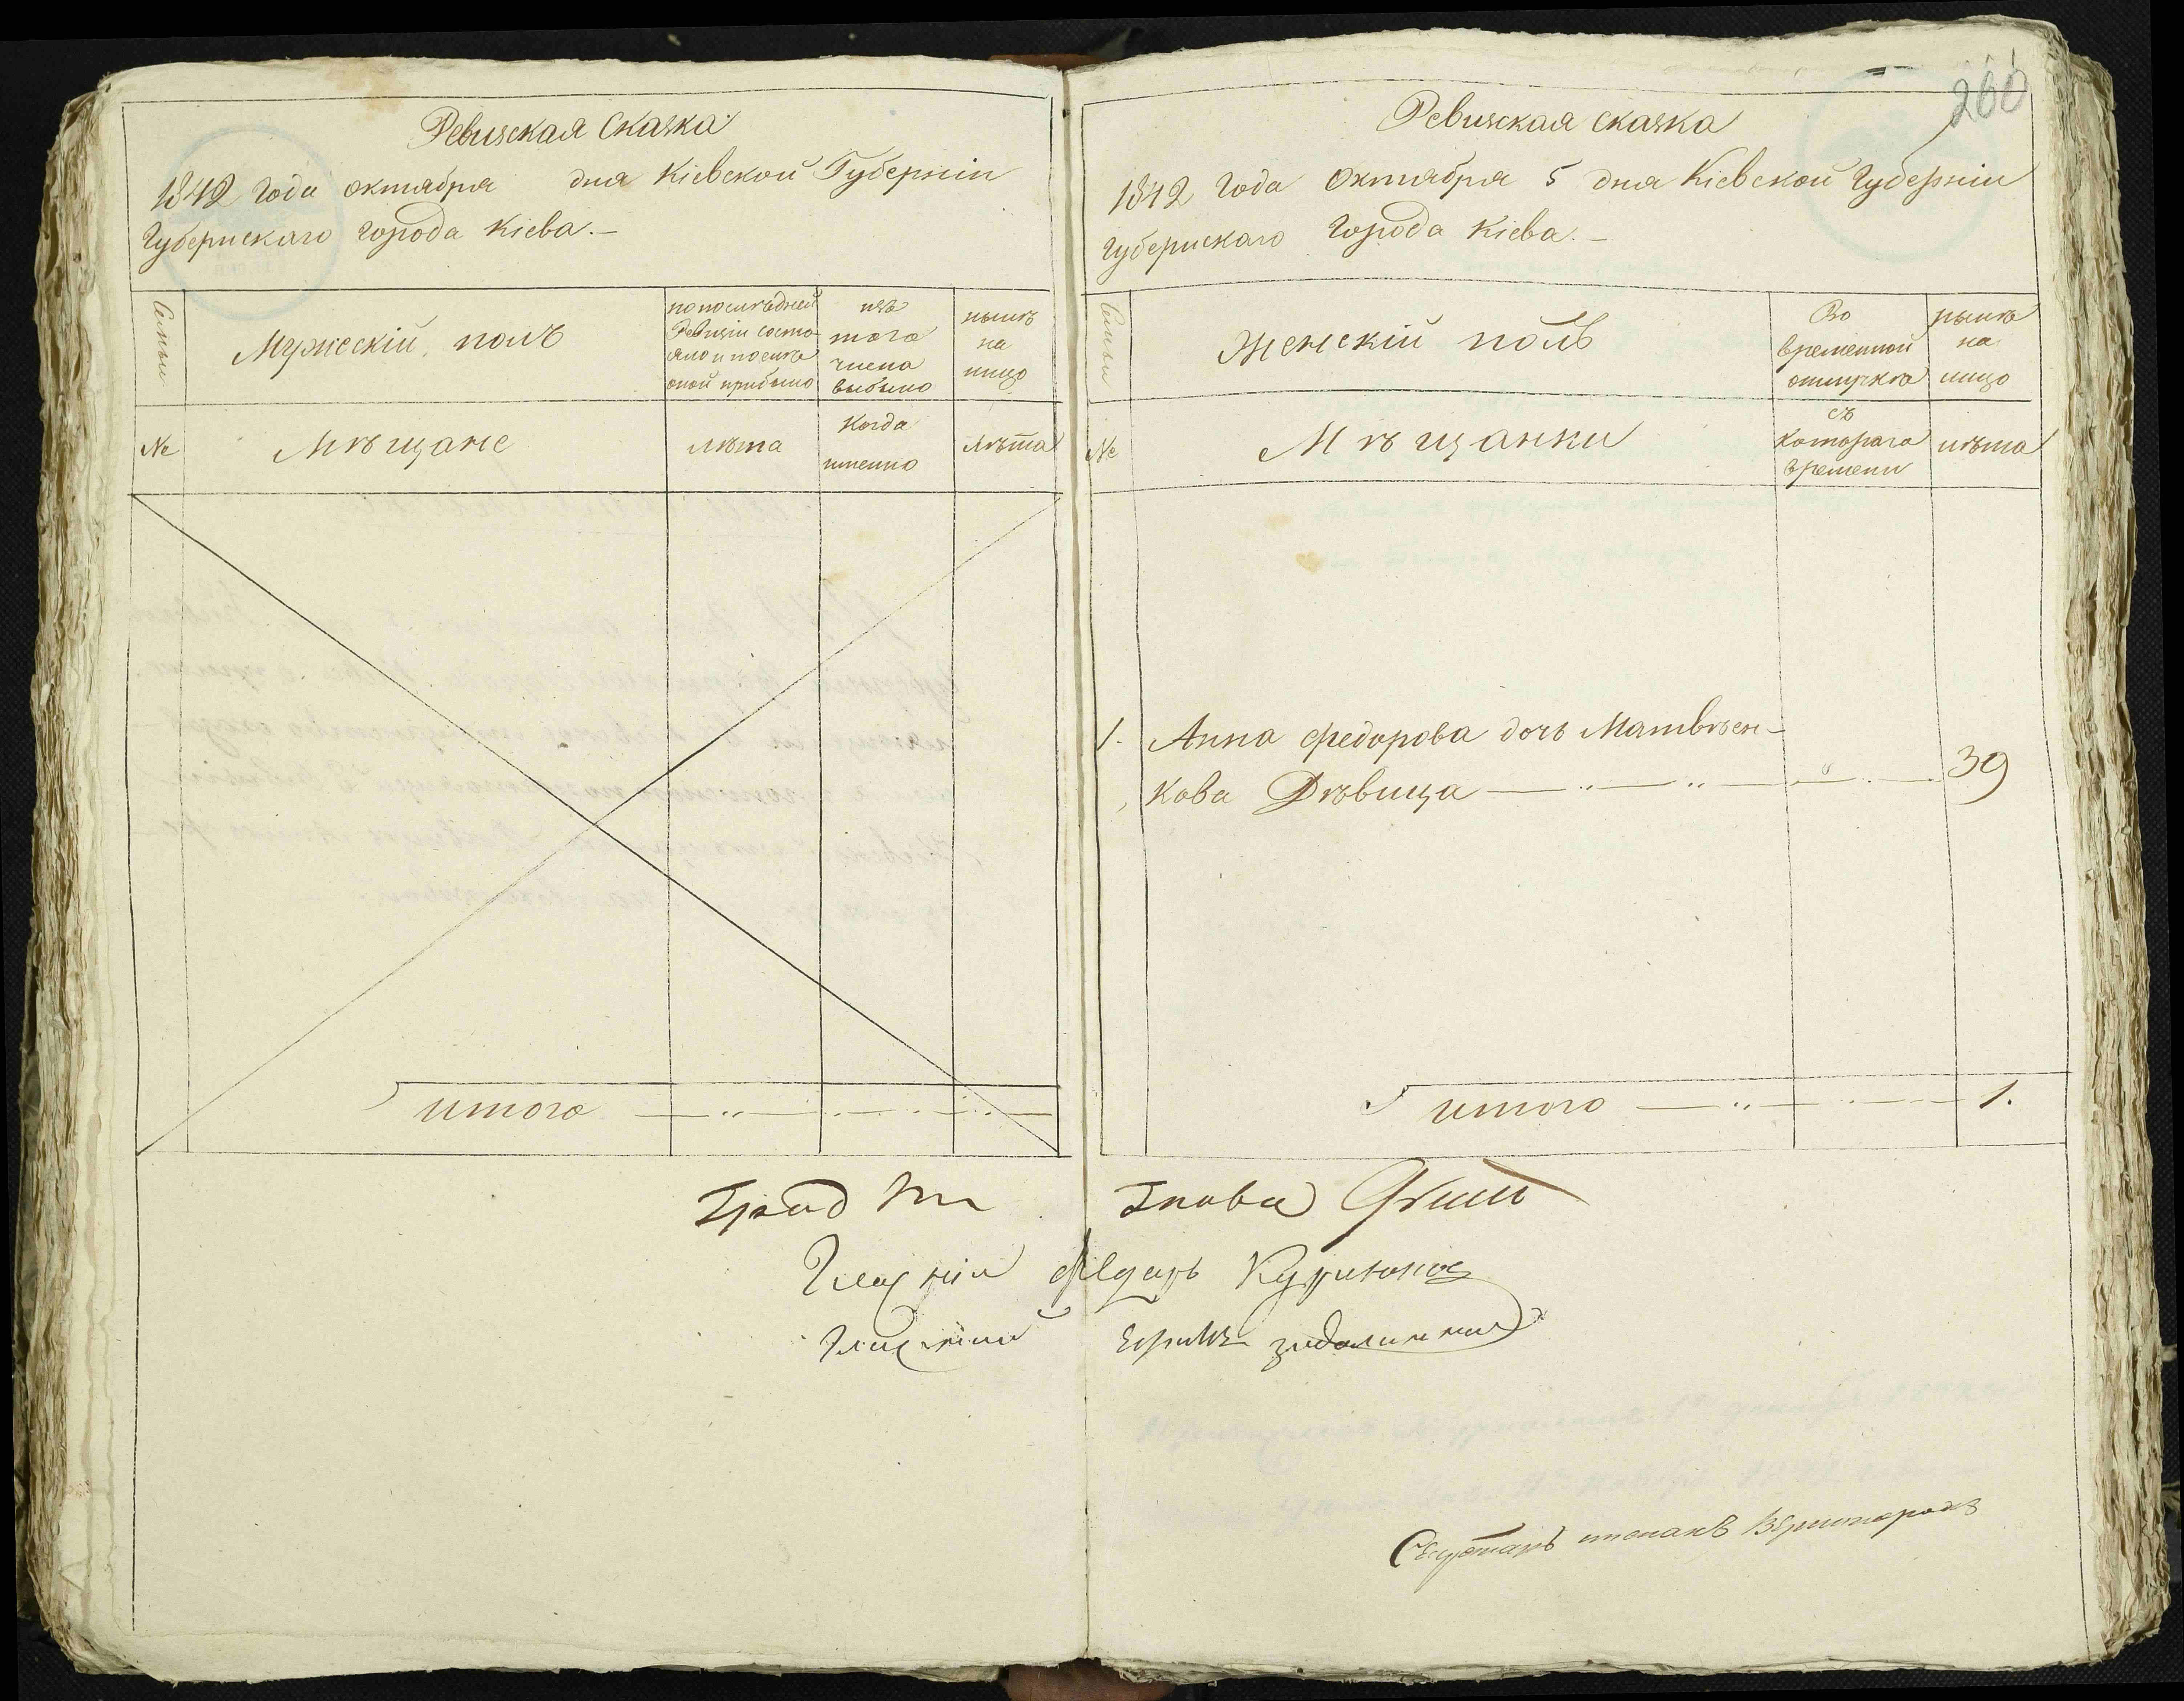 Ревизская Сказка
1842 года октября дня Кіевской Губерніи
Губернскаго города Кіева.—
Семьи
Мужескій полъ
по последней Ревизіи состояло и после оной прибыло
изъ того числа выбыло
ныне на лицо
№
Мѣщане
лѣта
Когда именно
Лѣта
итого
260
Ревизская сказка
1842 года Октября 5 дня Кіевской Губерніи
Губернскаго Города Кіева.—
Семьи
Женскій полъ
Во временной отлучкѣ
ныне на лицо
№
Мѣщанки
съ котораго времени
лѣта
1. Анна Федорова дочь Матвѣен-
кова Дѣвица — " — " — 39
итого — " — 1.
Глава
Гласній Федоръ
Гласный
Секретарь